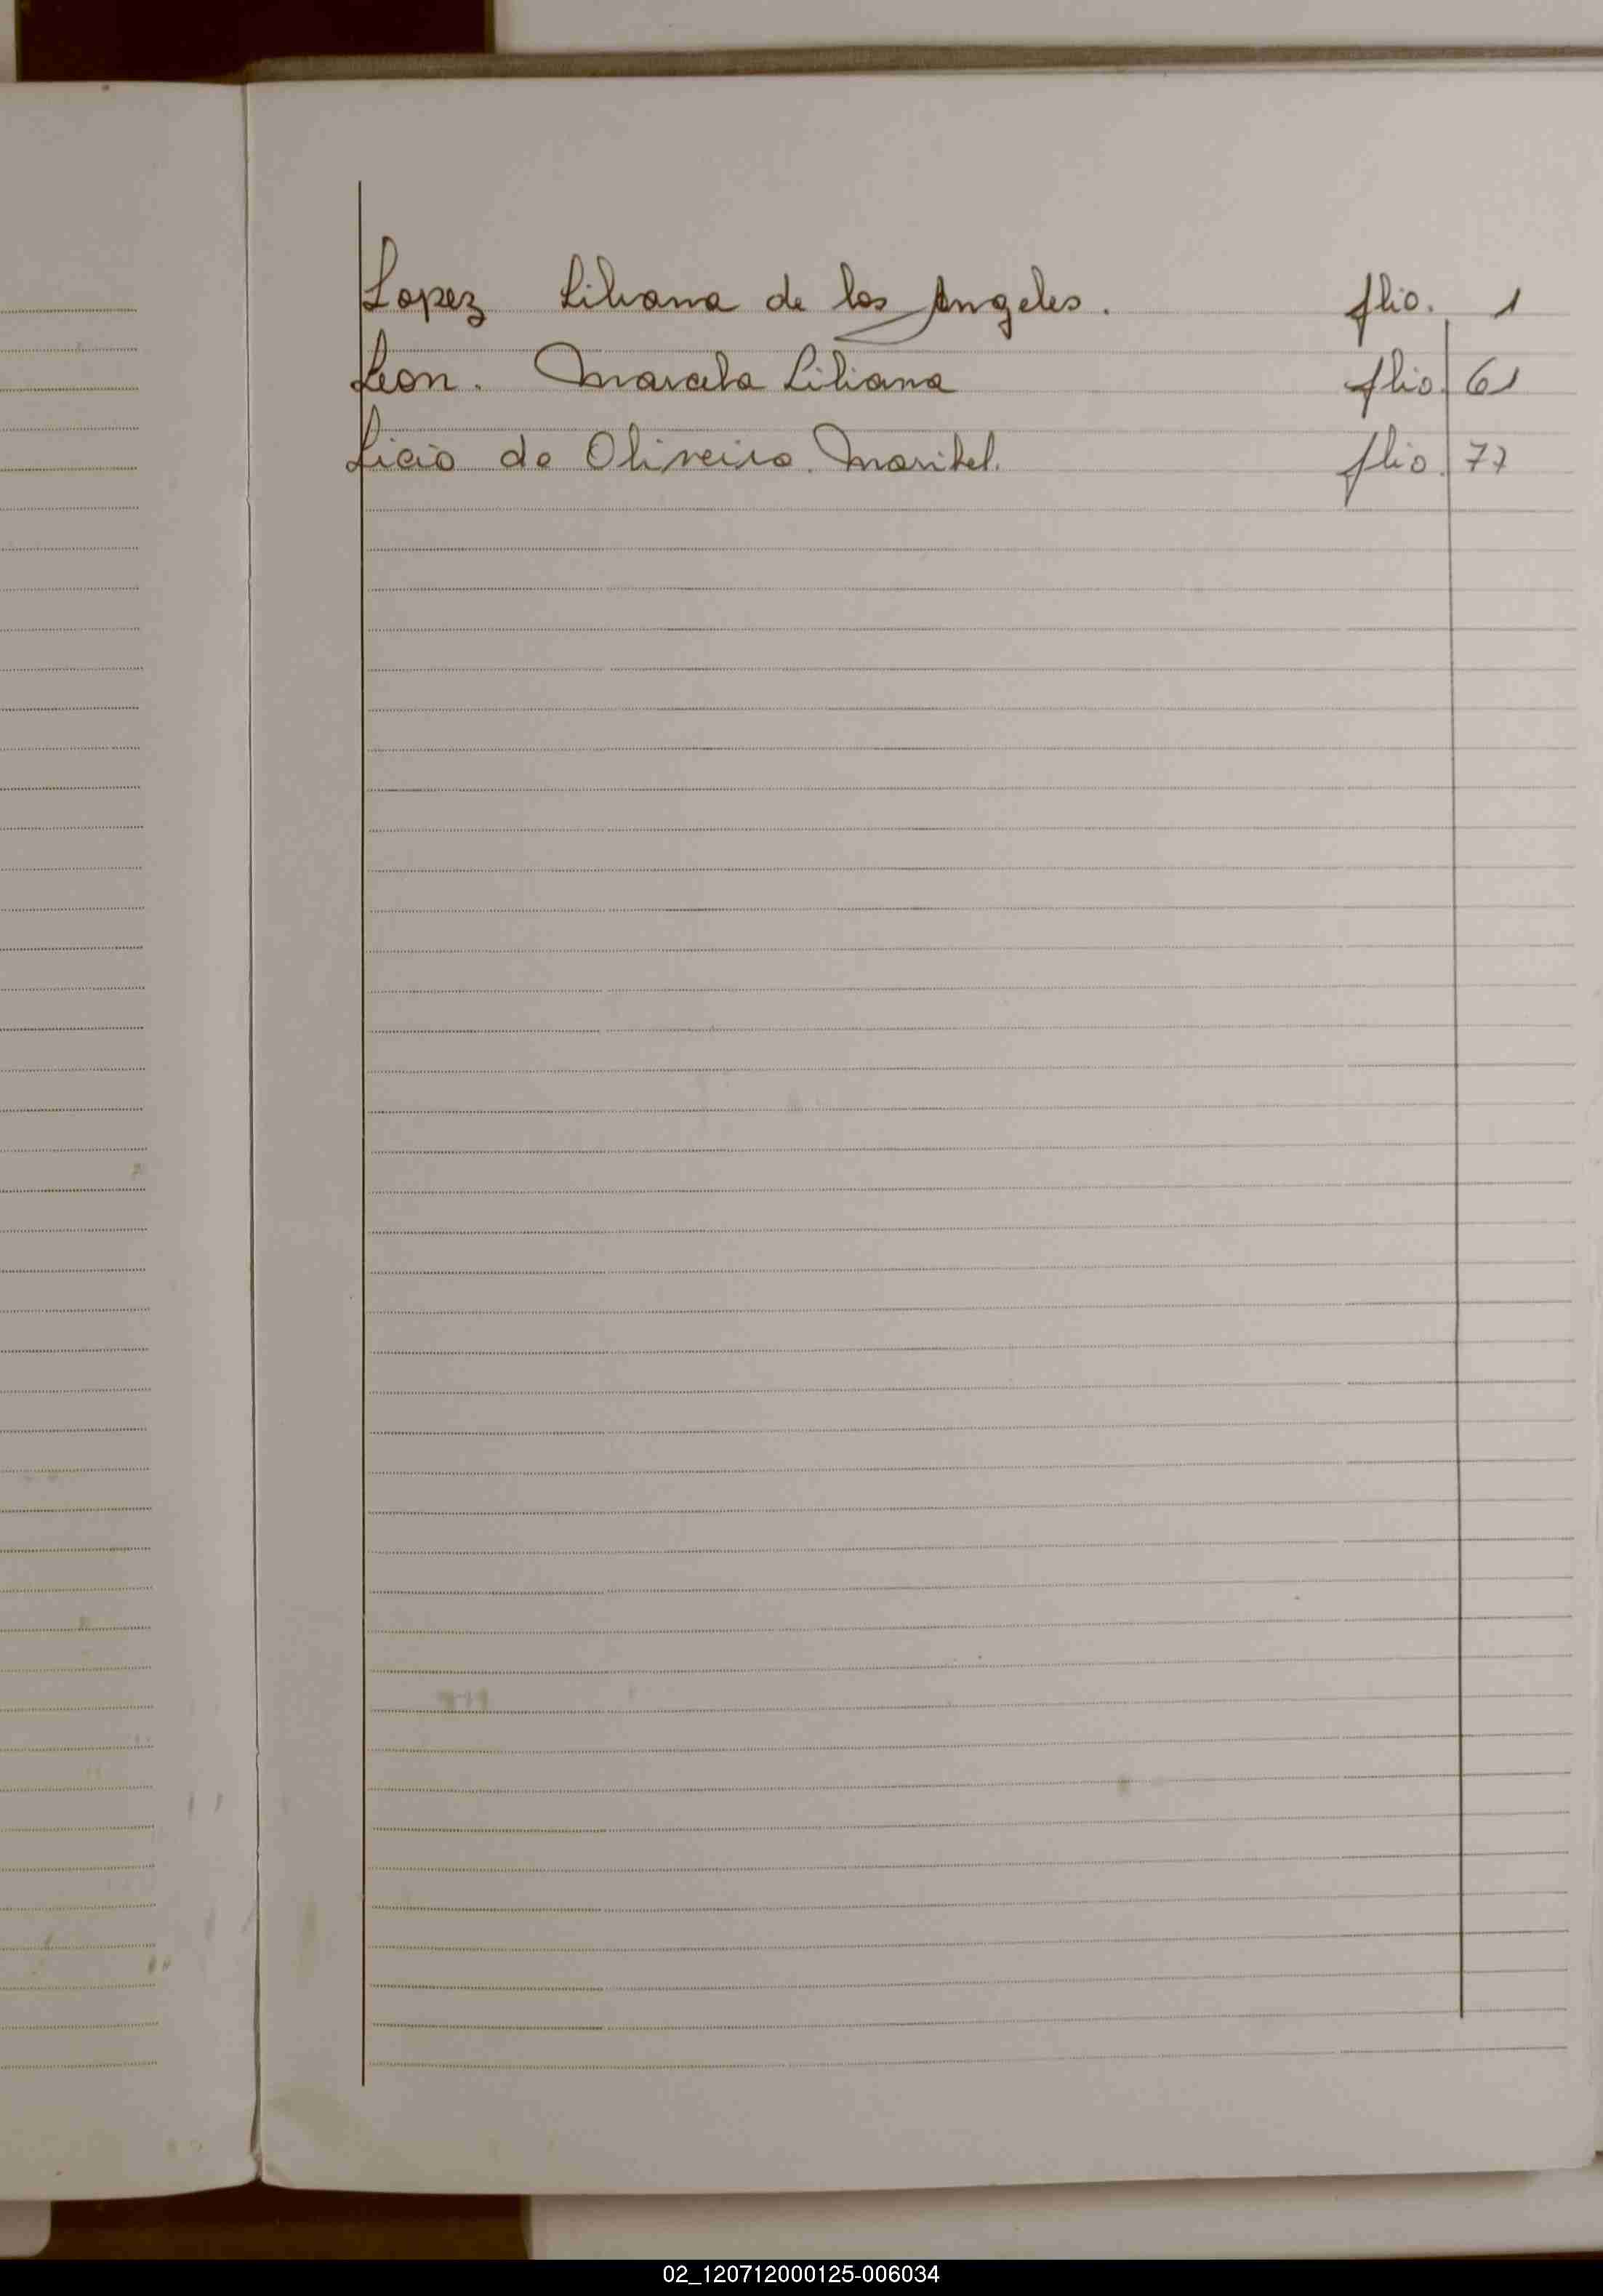 Lopez Liliana de los Angeles. flio. 1
Leon. Marcela Liliana flio. 61
Licio de Oliveira. Maribel. flio. 77
02_120712000125-006034